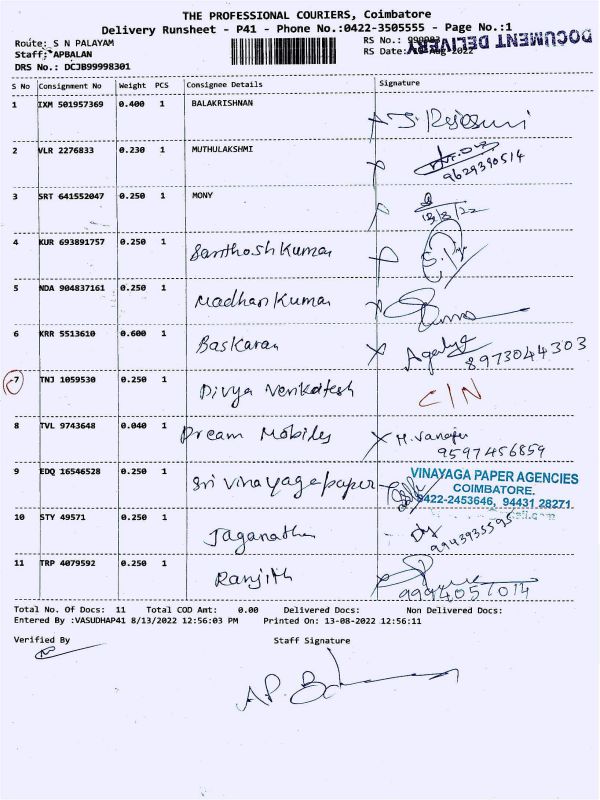 THE PROFESSIONAL COURIERS, Coimbatore
Delivery Runsheet - P41 - Phone No.:0422-3505555 - Page No.:1
DOCUMENT DELIVERY
Route: S N PALAYAM
RS No.:
Staff: APBALAN
RS Date: Aug-2022
DRS No.: DCJB99998301
S No Consignment No Weight PCS Consignee Details Signature
1 IXM 501957369 0.400 1 BALAKRISHNAN
2 VLR 2276833 0.230 1 MUTHULAKSHMI
9629390514
3 SRT 641552047 0.250 1 MONY
13/8/22
4 KUR 693891757 0.250 1 Santhosh Kumar
5 NDA 904837161 0.250 1 Madhan Kumar
6 KRR 5513610 0.600 1 Baskaran
8973044303
7 TNJ 1059530 0.250 1 Divya Venkatesh C/N
8 TVL 9743648 0.040 1 Dream Mobiles
9597456859
9 EDQ 16546528 0.250 1 Sri Vinayaga paper
VINAYAGA PAPER AGENCIES
COIMBATORE.
0422-2453646, 94431 28271.
10 STY 49571 0.250 1 Jaganathan
9943935595
11 TRP 4079592 0.250 1 Ranjith
9994057014
Total No. Of Docs: 11 Total COD Amt: 0.00 Delivered Docs: Non Delivered Docs:
Entered By :VASUDHAP41 8/13/2022 12:56:03 PM Printed On: 13-08-2022 12:56:11
Verified By Staff Signature